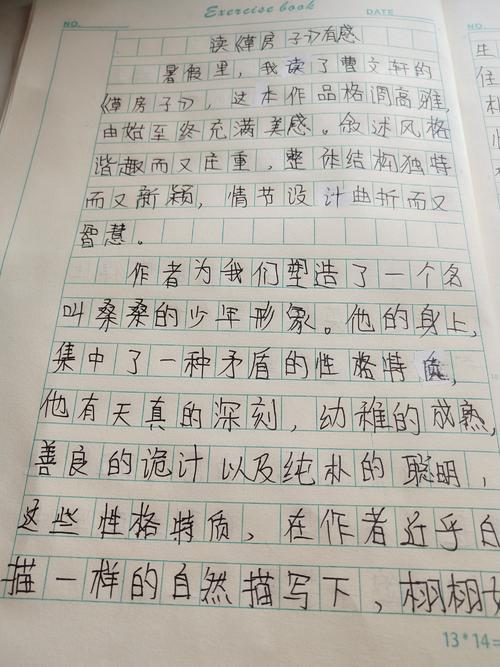 Exercise book
NO.
DATE
读《草房子》有感
暑假里，我读了曹文轩的
《草房子》，这本作品格调高雅，
由始至终充满美感。叙述风格
谐趣而又庄重，整体结构独特
而又新颖，情节设计曲折而又
智慧。
作者为我们塑造了一个名
叫桑桑的少年形象。他的身上，
集中了一种矛盾的性格特质，
他有天真的深刻，幼稚的成熟，
善良的诡计以及纯朴的聪明，
这些性格特质，在作者近乎白
描一样的自然描写下，栩栩
13*14=